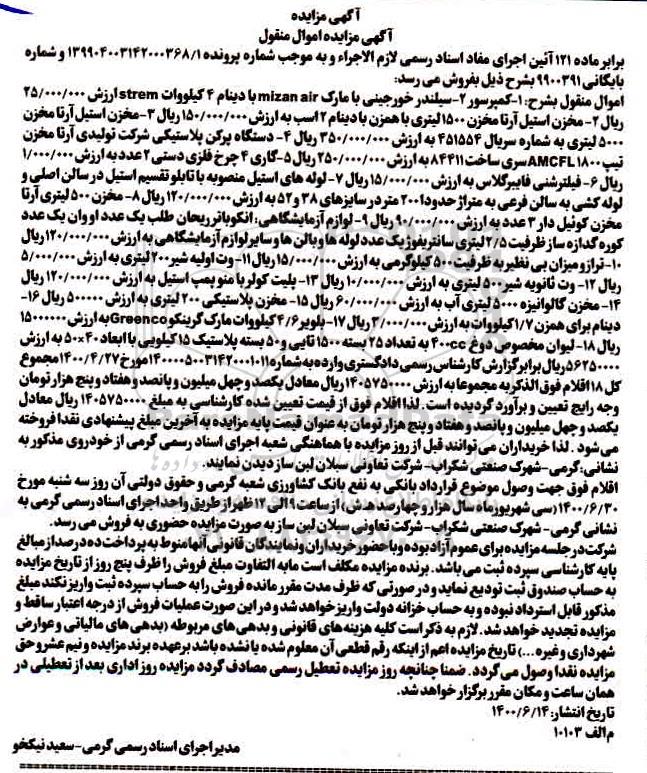 آگهی مزایده
آگهی مزایده اموال منقول
برابر ماده ۱۲۱ آئین اجرای مفاد اسناد رسمی لازم الاجراء و به موجب شماره پرونده ۱۳۹۹۰۴۰۰۳۱۴۲۰۰۰۳۶۸/۱ و شماره
بایگانی ۹۹۰۰۳۹۱ بشرح ذیل بفروش می رسد:
اموال منقول بشرح: ۱-کمپرسور ۲-سیلندر خورجینی با مارک mizan air با دینام ۴ کیلووات strem ارزش ۲۵/۰۰۰/۰۰۰
ریال ۲- مخزن استیل آرتا مخزن ۱۵۰۰ لیتری با همزن با دینام ۲ اسب به ارزش ۱۵۰/۰۰۰/۰۰۰ ریال ۳-مخزن استیل آرتا مخزن
۵۰۰۰ لیتری به شماره سریال ۴۵۱۵۵۴ به ارزش ۳۵۰/۰۰۰/۰۰۰ ریال ۴- دستگاه پرکن پلاستیکی شرکت تولیدی آرتا مخزن
تیپ AMCFL۱۸۰۰ سری ساخت ۸۴۴۱۱ به ارزش ۲۵۰/۰۰۰/۰۰۰ ریال ۵-گاری ۴ چرخ فلزی دستی ۲ عدد به ارزش ۱/۰۰۰/۰۰۰
ریال ۶- فیلتر شنی فایبرگلاس به ارزش ۱۵/۰۰۰/۰۰۰ ریال ۷-لوله های استیل منصوبه با تابلو تقسیم استیل در سالن اصلی و
لوله کشی به سالن فرعی به متراژ حدودا ۲۰۰ متر در سایزهای ۳۸ و ۵۲ به ارزش ۱۲۰/۰۰۰/۰۰۰ ریال ۸- مخزن ۵۰۰ لیتری آرتا
مخزن کوئیل دار ۳ عدد به ارزش ۹۰/۰۰۰/۰۰۰ ریال ۹- لوازم آزمایشگاهی: انکوباتر ریحان طلب یک عدد اوان یک عدد
کوره گدازه ساز ظرفیت ۲/۵ لیتری سانتریفوژ یک عدد لوله ها و بالن ها و سایر لوازم آزمایشگاهی به ارزش ۱۲۰/۰۰۰/۰۰۰ ریال
۱۰-ترازو میزان بی نظیر به ظرفیت ۵۰۰ کیلوگرمی به ارزش ۱۵/۰۰۰/۰۰۰ ریال ۱۱-وت اولیه شیر ۲۰۰ لیتری به ارزش ۵/۰۰۰/۰۰۰
ریال ۱۲- وت ثانویه شیر ۵۰۰ لیتری به ارزش ۱۰/۰۰۰/۰۰۰ ریال ۱۳- پلیت کولر با منو پمپ استیل به ارزش ۱۲۰/۰۰۰/۰۰۰ ریال
۱۴- مخزن گالوانیزه ۵۰۰۰ لیتری آب به ارزش ۶۰/۰۰۰/۰۰۰ ریال ۱۵- مخزن پلاستیکی ۲۰۰ لیتری به ارزش ۵۰۰۰۰۰ ریال ۱۶-
دینام برای همزن ۱/۷ کیلووات به ارزش ۳/۰۰۰/۰۰۰ ریال ۱۷-بلویر ۴/۶ کیلووات مارک گرینکو Greenco به ارزش ۱۵۰۰۰۰۰۰
ریال ۱۸-لیوان مخصوص دوغ ۴۰۰cc به تعداد ۲۵ بسته ۱۵۰۰ تایی و ۵۰ بسته پلاستیک ۱۵ کیلویی با ابعاد ۴۰×۵۰ به ارزش
۵۶۲۵۰۰۰۰ ریال برابر گزارش کارشناس رسمی دادگستری وارده به شماره ۱۴۰۰۰۰۵۰۰۳۱۴۲۰۰۰۱۰۱۱ مورخ ۱۴۰۰/۴/۲۷ مجموع
کل ۱۸ اقلام فوق الذکر به مجموعا به ارزش ۱۴۰۵۷۵۰۰۰۰ ریال معادل یکصد و چهل میلیون و پانصد و هفتاد و پنج هزار تومان
وجه رایج تعیین و برآورد گردیده است. لذا اقلام فوق از قیمت تعیین شده کارشناسی به مبلغ ۱۴۰۵۷۵۰۰۰۰ ریال معادل
یکصد و چهل میلیون و پانصد و هفتاد و پنج هزار تومان به عنوان قیمت پایه مزایده به آخرین مبلغ پیشنهادی نقدا فروخته
می شود. لذا خریداران می توانند قبل از روز مزایده با هماهنگی شعبه اجرای اسناد رسمی گرمی از خودروی مذکور به
نشانی: گرمی- شهرک صنعتی شکراب- شرکت تعاونی سبلان لبن ساز دیدن نمایند.
اقلام فوق جهت وصول موضوع قرارداد بانکی به نفع بانک کشاورزی شعبه گرمی و حقوق دولتی آن روز سه شنبه مورخ
۱۴۰۰/۶/۳۰ (سی شهریور ماه سال هزار و چهارصد هش) از ساعت ۹ الی ۱۲ ظهر از طریق واحد اجرای اسناد رسمی گرمی به
نشانی گرمی- شهرک صنعتی شکراب- شرکت تعاونی سبلان لبن ساز به صورت مزایده حضوری به فروش می رسد.
شرکت در جلسه مزایده برای عموم آزاد بوده و با حضور خریداران و نمایندگان قانونی آنها منوط به پرداخت ده درصد از مبالغ
پایه کارشناسی سپرده ثبت می باشد. برنده مزایده مکلف است مابه التفاوت مبلغ فروش را ظرف پنج روز از تاریخ مزایده
به حساب صندوق ثبت تودیع نماید و در صورتی که ظرف مدت مقرر مانده فروش را به حساب سپرده ثبت واریز نکند مبلغ
مذکور قابل استرداد نبوده و به حساب خزانه دولت واریز خواهد شد و در این صورت عملیات فروش از درجه اعتبار ساقط و
مزایده تجدید خواهد شد. لازم به ذکر است کلیه هزینه های قانونی و بدهی های مربوطه (بدهی های مالیاتی و عوارض
شهرداری و غیره...) تاریخ مزایده اعم از اینکه رقم قطعی آن معلوم شده یا نشده باشد بر عهده برنده مزایده و نیم عشر و حق
مزایده نقدا وصول می گردد. ضمنا چنانچه روز مزایده تعطیل رسمی مصادف گردد مزایده روز اداری بعد از تعطیلی در
همان ساعت و مکان مقرر برگزار خواهد شد.
تاریخ انتشار: ۱۴۰۰/۶/۱۴
م الف ۱۰۱۰۳
مدیر اجرای اسناد رسمی گرمی-سعید نیکخو